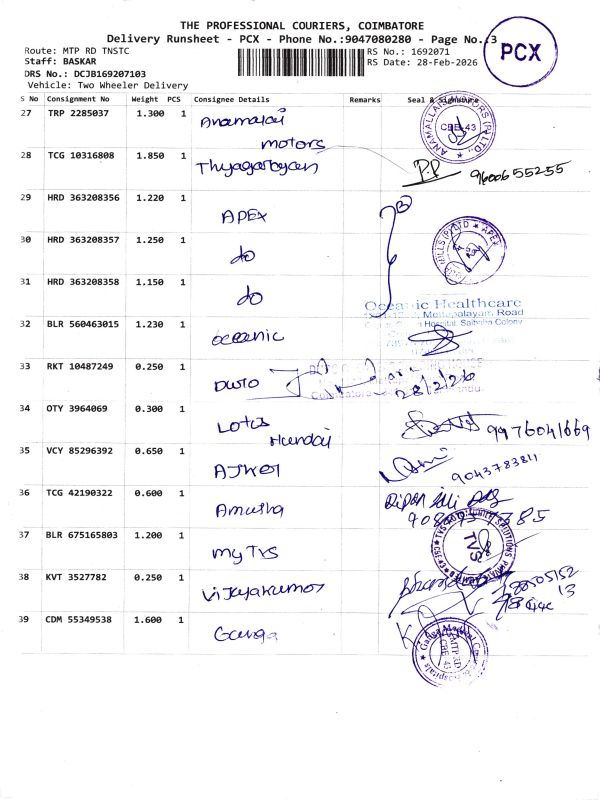 THE PROFESSIONAL COURIERS, COIMBATORE
Delivery Runsheet - PCX - Phone No.:9047080280 - Page No.:3
Route: MTP RD TNSTC
RS No.: 1692071
PCX
Staff: BASKAR
RS Date: 28-Feb-2026
DRS No.: DCJB169207103
Vehicle: Two Wheeler Delivery
S No Consignment No Weight PCS Consignee Details Remarks Seal & Signature
27 TRP 2285037 1.300 1 Anamalai
motors
CBE-43
28 TCG 10316808 1.850 1 Thyagarayan
P.P 9600655255
29 HRD 363208356 1.220 1 APEX
30 HRD 363208357 1.250 1 do
31 HRD 363208358 1.150 1 do
Oceanic Healthcare
Mettupalayam Road
Hospital, Saibaba Colony
32 BLR 560463015 1.230 1 oceanic
33 RKT 10487249 0.250 1 DUTO
28/2/26
34 OTY 3964069 0.300 1 Lotus
Hundai
9976041669
35 VCY 85296392 0.650 1 AJKer
9043783811
36 TCG 42190322 0.600 1 Amusha
37 BLR 675165803 1.200 1 myTVS
TVS
38 KVT 3527782 0.250 1 Vijayakumar
39 CDM 55349538 1.600 1 Ganga
MTP RD
CBE 43